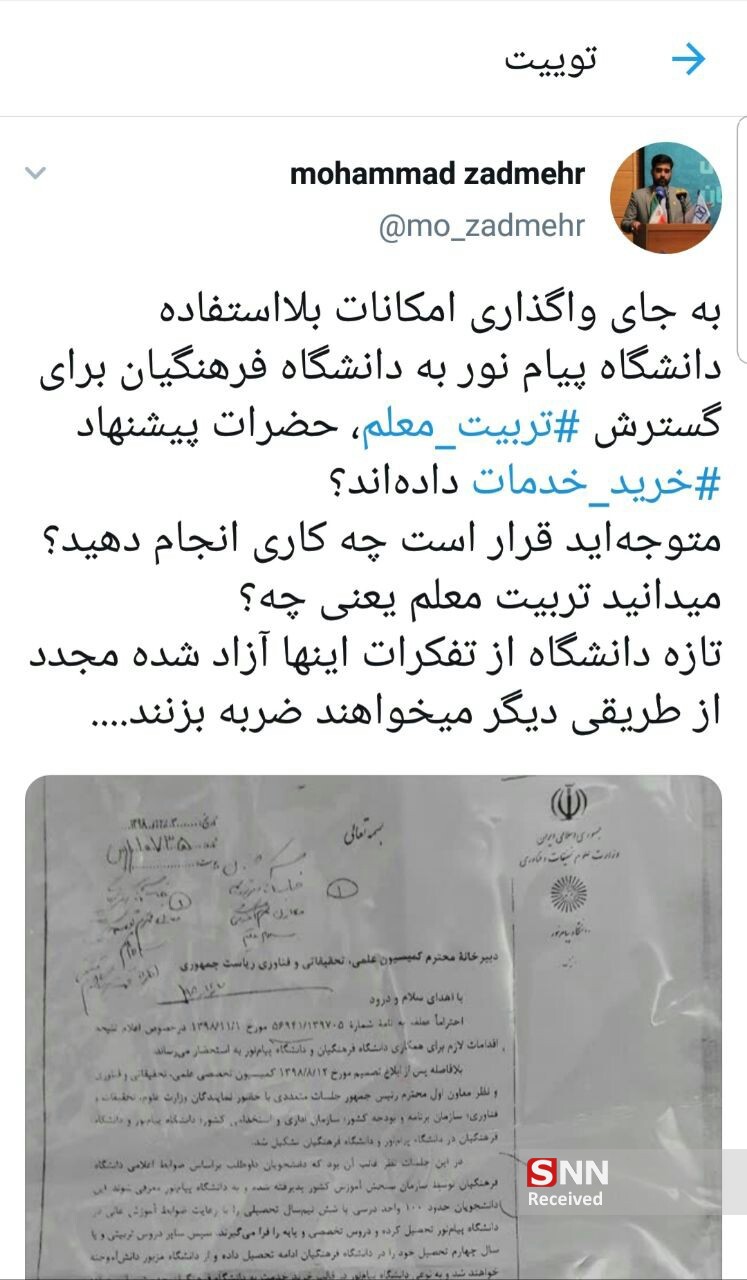 توییت
mohammad zadmehr
@mo_zadmehr
به جای واگذاری امکانات بلااستفاده
دانشگاه پیام نور به دانشگاه فرهنگیان برای
گسترش #تربیت_معلم، حضرات پیشنهاد
#خرید_خدمات داده‌اند؟
متوجه‌اید قرار است چه کاری انجام دهید؟
میدانید تربیت معلم یعنی چه؟
تازه دانشگاه از تفکرات اینها آزاد شده مجدد
از طریقی دیگر میخواهند ضربه بزنند....
بسمه تعالی
جمهوری اسلامی ایران
وزارت علوم تحقیقات و فناوری
دانشگاه پیام نور
دبیرخانهٔ محترم کمیسیون علمی، تحقیقاتی و فناوری ریاست جمهوری
با اهدای سلام و درود
احتراماً عطف به نامهٔ شمارهٔ ۵۶۹۴۱/۱۳۹۷۰۵ مورخ ۱۳۹۸/۱۱/۱ درخصوص اعلام نتیجه
اقدامات لازم برای همکاری دانشگاه فرهنگیان و دانشگاه پیام‌نور به استحضار می‌رساند.
بلافاصله پس از ابلاغ تصمیم مورخ ۱۳۹۸/۸/۱۲ کمیسیون تخصصی علمی، تحقیقاتی و فناوری
و نظر معاون اول محترم رئیس جمهور جلسات متعددی با حضور نمایندگان وزارت علوم، تحقیقات و
فناوری؛ سازمان برنامه و بودجه کشور؛ سازمان اداری و استخدامی کشور؛ دانشگاه پیام‌نور و دانشگاه
فرهنگیان در دانشگاه پیام‌نور و دانشگاه فرهنگیان تشکیل شد.
در این جلسات نظر غالب آن بود که دانشجویان داوطلب براساس ضوابط اعلامی دانشگاه
فرهنگیان توسط سازمان سنجش آموزش کشور پذیرفته شده و به دانشگاه پیام‌نور معرفی شوند این
دانشجویان حدود ۱۰۰ واحد درسی یا شش نیم‌سال تحصیلی را با رعایت ضوابط آموزش عالی در
دانشگاه پیام‌نور تحصیل کرده و دروس تخصصی و پایه را فرا می‌گیرند. سپس سایر دروس تربیتی و یا
سال چهارم تحصیل خود را در دانشگاه فرهنگیان ادامه تحصیل داده و از دانشگاه مزبور دانش‌آموخته
خواهند شد و به نوعی دانشگاه پیام‌نور در قالب خرید خدمت به دانشگاه فرهنگیان
SNN
Received